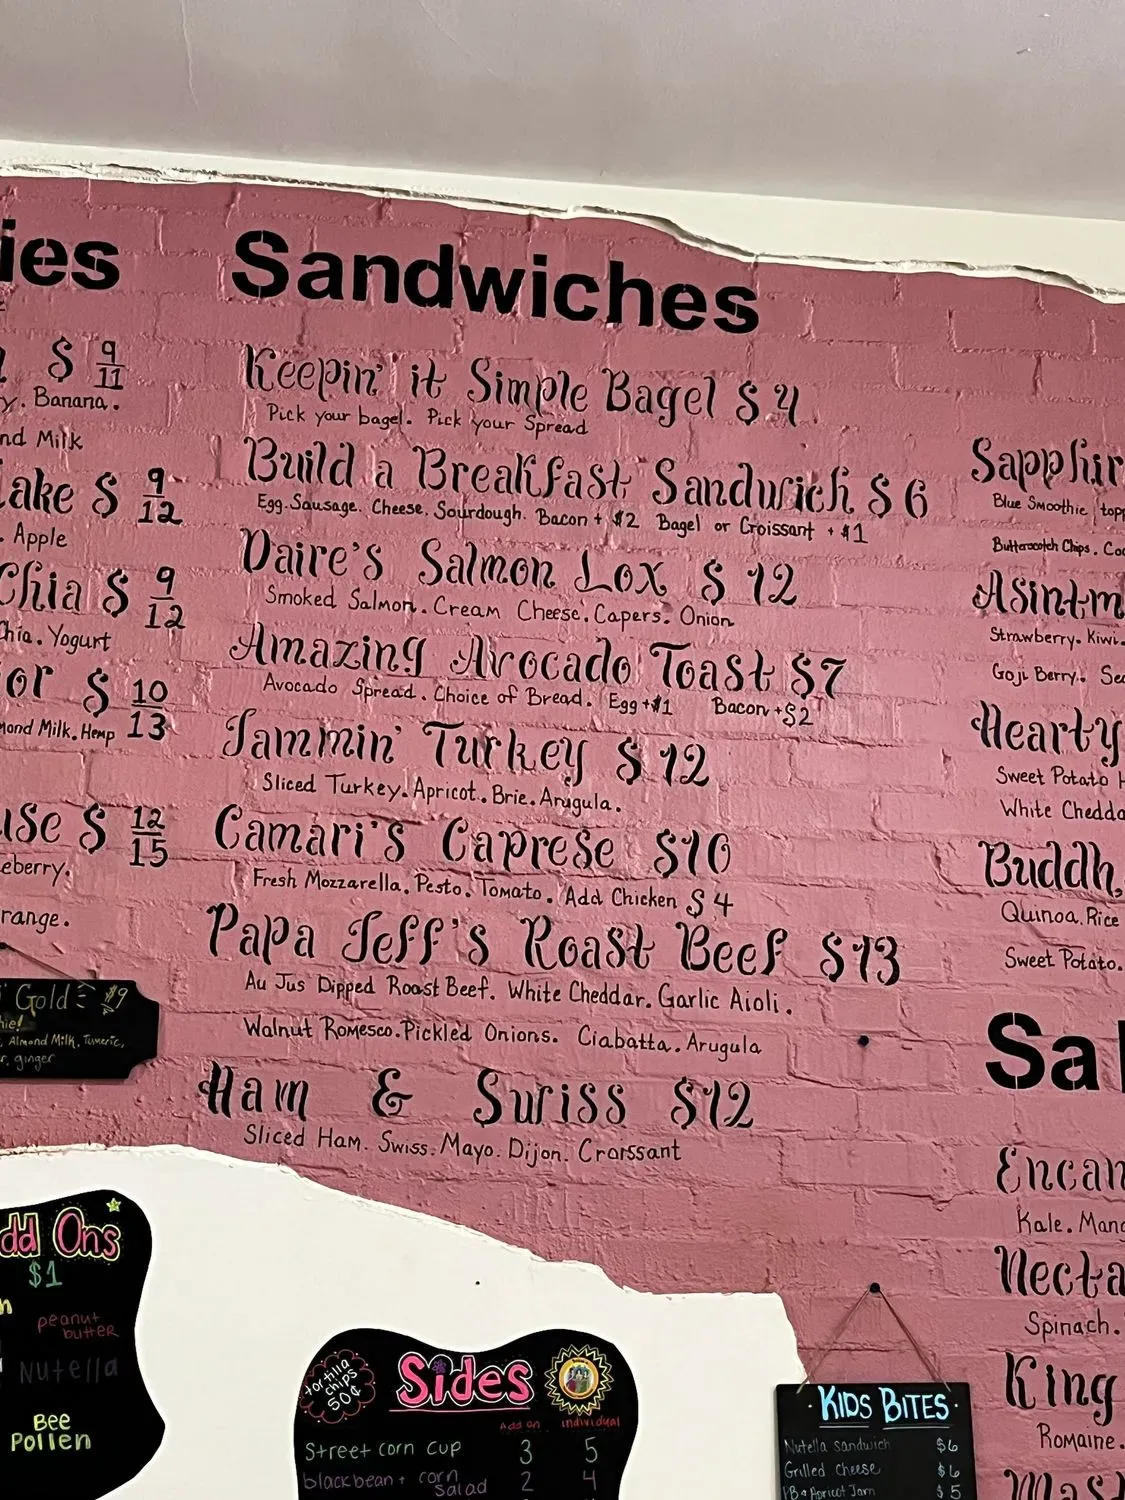 ies
$ 9/11
y. Banana.
nd Milk
ake $ 9/12
. Apple
Chia $ 9/12
hia. Yogurt
or $ 10/13
mond Milk. Hemp
use $ 12/15
eberry.
range.
Gold $9
hie!
Almond Milk, Tumeric,
r, ginger
dd Ons
$1
peanut
butter
Nutella
Bee
Pollen
Sandwiches
Keepin' it Simple Bagel $4
Pick your bagel. Pick your Spread
Build a Breakfast Sandwich $6
Egg. Sausage. Cheese. Sourdough. Bacon + $2 Bagel or Croissant + $1
Daire's Salmon Lox $12
Smoked Salmon. Cream Cheese. Capers. Onion
Amazing Avocado Toast $7
Avocado Spread. Choice of Bread. Egg +$1 Bacon +$2
Jammin' Turkey $12
Sliced Turkey. Apricot. Brie. Arugula.
Camari's Caprese $10
Fresh Mozzarella. Pesto. Tomato. Add Chicken $4
Papa Jeff's Roast Beef $13
Au Jus Dipped Roast Beef. White Cheddar. Garlic Aioli.
Walnut Romesco. Pickled Onions. Ciabatta. Arugula
Ham & Swiss $12
Sliced Ham. Swiss. Mayo. Dijon. Croissant
tortilla
chips
50¢
Sides
Add on individual
Street corn cup 3 5
blackbean + corn salad 2 4
Sapphir
Blue Smoothie topp
Butterscotch Chips. Coc
Asintm
Strawberry. Kiwi.
Goji Berry. See
Hearty
Sweet Potato H
White Chedda
Buddh
Quinoa. Rice
Sweet Potato.
Sal
Encan
Kale. Mang
Necta
Spinach.
King
Romaine.
Mast
Kids Bites
Nutella sandwich $6
Grilled cheese $6
PB + Apricot Jam $5